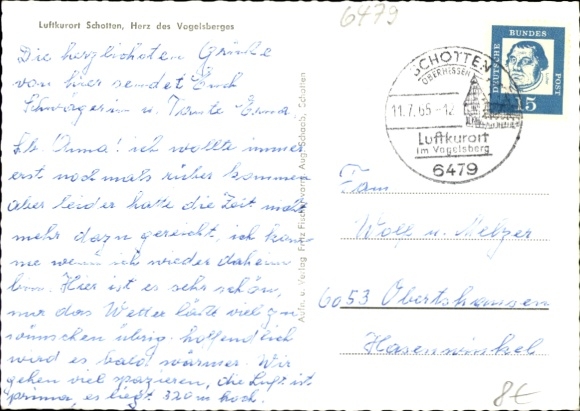 6479
Luftkurort Schotten, Herz des Vogelsberges
Die herzlichsten Grüße
von hier sendet Euch
Schwägerin u. Tante Erna.
Lb. Anna! ich wollte immer
erst nochmals rüber kommen
aber leider hatte die Zeit nicht
mehr dazu gereicht, ich kom
me wenn ich wieder daheim
bin. Hier ist es sehr schön,
nur das Wetter läßt viel zu
wünschen übrig. hoffendlich
wird es bald wärmer. Wir
gehen viel spazieren, die Luft ist
prima, es liegt 320 m hoch.
Aufn. u. Verlag Foto Fischer
Aug. Schach, Schotten
SCHOTTEN
OBERHESSEN
11.7.65-12
Luftkurort
im Vogelsberg
6479
DEUTSCHE BUNDESPOST
15
Fam
Woll u. Melzer
6053 Obertshausen
Hasenwinkel
8€